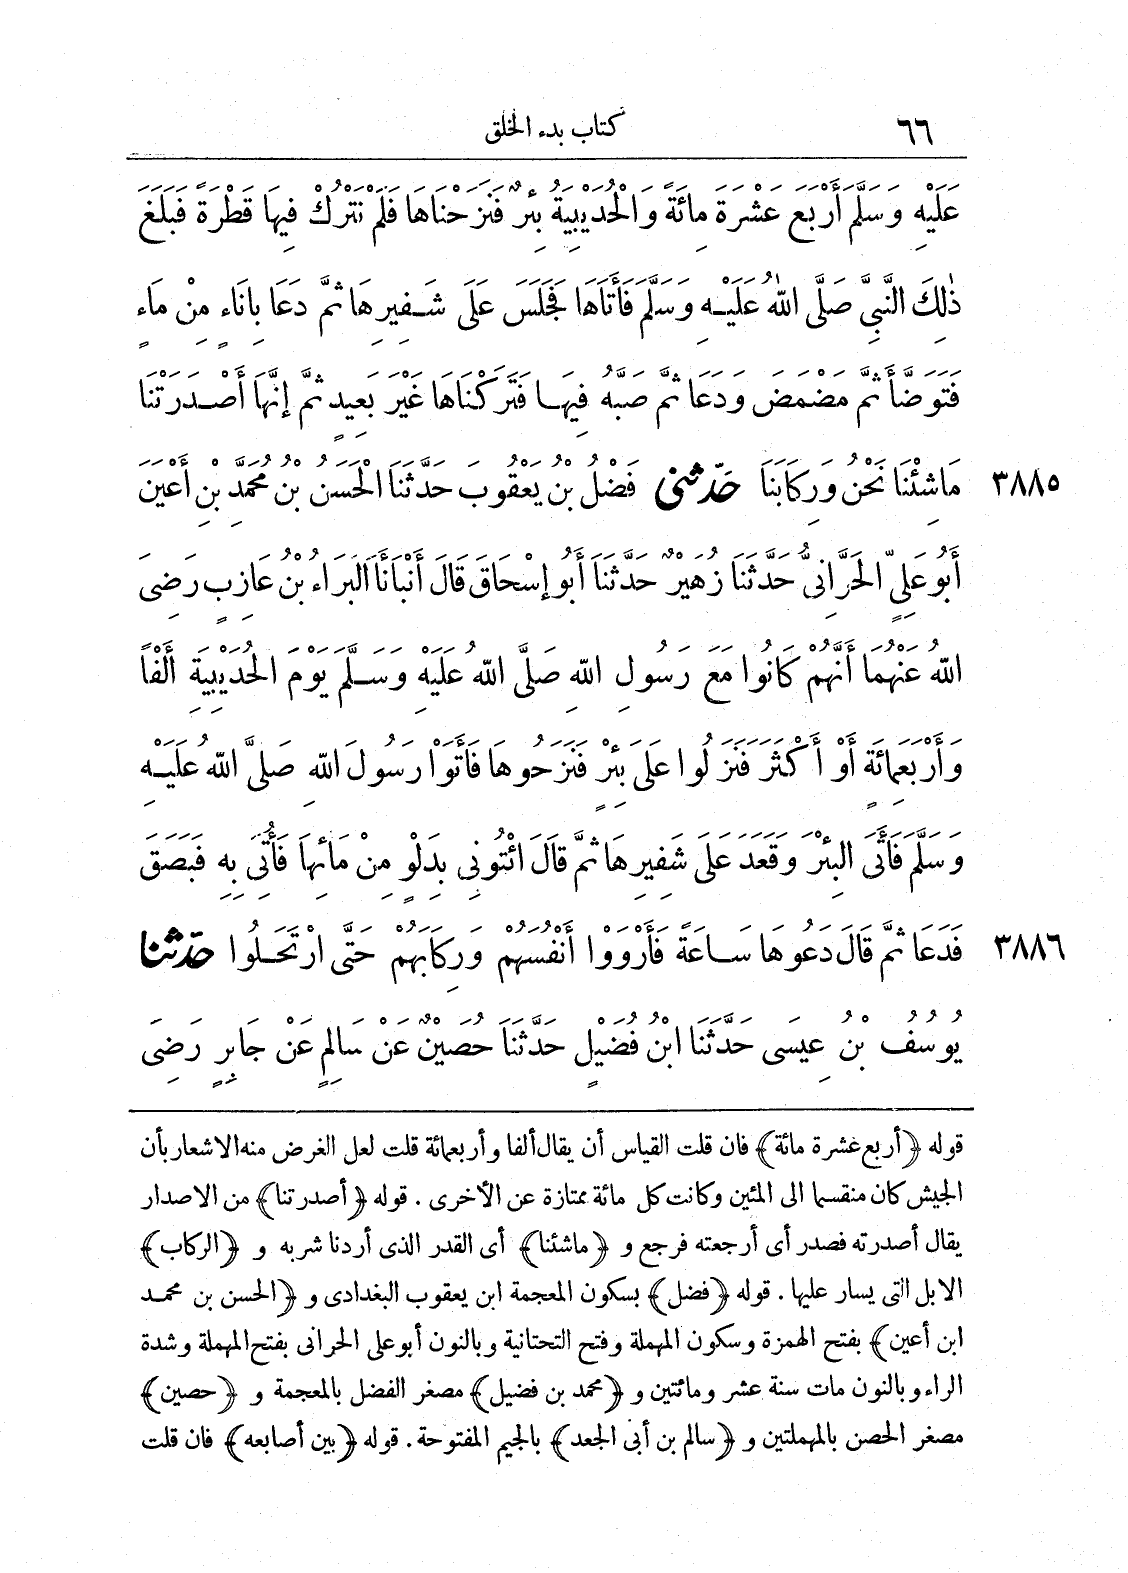 ٦٦ كتاب بدء الخلق
عَلَيْهِ وَسَلَّمَ أَرْبَعَ عَشْرَةَ مِائَةً وَالْحُدَيْبِيَةُ بِئْرٌ فَنَزَحْنَاهَا فَلَمْ نَتْرُكْ فِيهَا قَطْرَةً فَبَلَغَ
ذٰلِكَ النَّبِيَّ صَلَّى اللهُ عَلَيْهِ وَسَلَّمَ فَأَتَاهَا فَجَلَسَ عَلَى شَفِيرِهَا ثُمَّ دَعَا بِانَاءٍ مِنْ مَاءٍ
فَتَوَضَّأَ ثُمَّ مَضْمَضَ وَدَعَا ثُمَّ صَبَّهُ فِيهَا فَتَرَكْنَاهَا غَيْرَ بَعِيدٍ ثُمَّ إِنَّهَا أَصْدَرَتْنَا
٣٨٨٥ مَاشِئْنَا نَحْنُ وَرِكَابَنَا حَدَّثَنِى فَضْلُ بْنُ يَعْقُوبَ حَدَّثَنَا الْحَسَنُ بْنُ مُحَمَّدِ بْنِ أَعْيَنَ
أَبُو عَلِيٍّ الْحَرَّانِىُّ حَدَّثَنَا زُهَيْرٌ حَدَّثَنَا أَبُو إِسْحَاقَ قَالَ أَنْبَأَنَا الْبَرَاءُ بْنُ عَازِبٍ رَضِىَ
اللهُ عَنْهُمَا أَنَّهُمْ كَانُوا مَعَ رَسُولِ اللهِ صَلَّى اللهُ عَلَيْهِ وَسَلَّمَ يَوْمَ الْحُدَيْبِيَةِ أَلْفًا
وَأَرْبَعَمِائَةٍ أَوْ أَكْثَرَ فَنَزَلُوا عَلَى بِئْرٍ فَنَزَحُوهَا فَأَتَوْا رَسُولَ اللهِ صَلَّى اللهُ عَلَيْهِ
وَسَلَّمَ فَأَتَى الْبِئْرَ وَقَعَدَ عَلَى شَفِيرِهَا ثُمَّ قَالَ ائْتُونِى بِدَلْوٍ مِنْ مَائِهَا فَأُتِىَ بِهِ فَبَصَقَ
٣٨٨٦ فَدَعَا ثُمَّ قَالَ دَعُوهَا سَاعَةً فَأَرْوَوْا أَنْفُسَهُمْ وَرِكَابَهُمْ حَتَّى ارْتَحَلُوا حَدَّثَنَا
يُوسُفُ بْنُ عِيسَى حَدَّثَنَا ابْنُ فُضَيْلٍ حَدَّثَنَا حُصَيْنٌ عَنْ سَالِمٍ عَنْ جَابِرٍ رَضِىَ
قوله ﴿أربع عشرة مائة﴾ فان قلت القياس أن يقال ألفا وأربعمائة قلت لعل الغرض منه الاشعار بأن
الجيش كان منقسما الى المئين وكانت كل مائة ممتازة عن الأخرى . قوله ﴿أصدرتنا﴾ من الاصدار
يقال أصدرته فصدر أى أرجعته فرجع و ﴿ماشئنا﴾ أى القدر الذى أردنا شربه و ﴿الركاب﴾
الابل التى يسار عليها . قوله ﴿فضل﴾ بسكون المعجمة ابن يعقوب البغدادى و ﴿الحسن بن محمد
ابن أعين﴾ بفتح الهمزة وسكون المهملة وفتح التحتانية وبالنون أبو على الحرانى بفتح المهملة وشدة
الراء وبالنون مات سنة عشر ومائتين و ﴿محمد بن فضيل﴾ مصغر الفضل بالمعجمة و ﴿حصين﴾
مصغر الحصن بالمهملتين و ﴿سالم بن أبى الجعد﴾ بالجيم المفتوحة . قوله ﴿بين أصابعه﴾ فان قلت